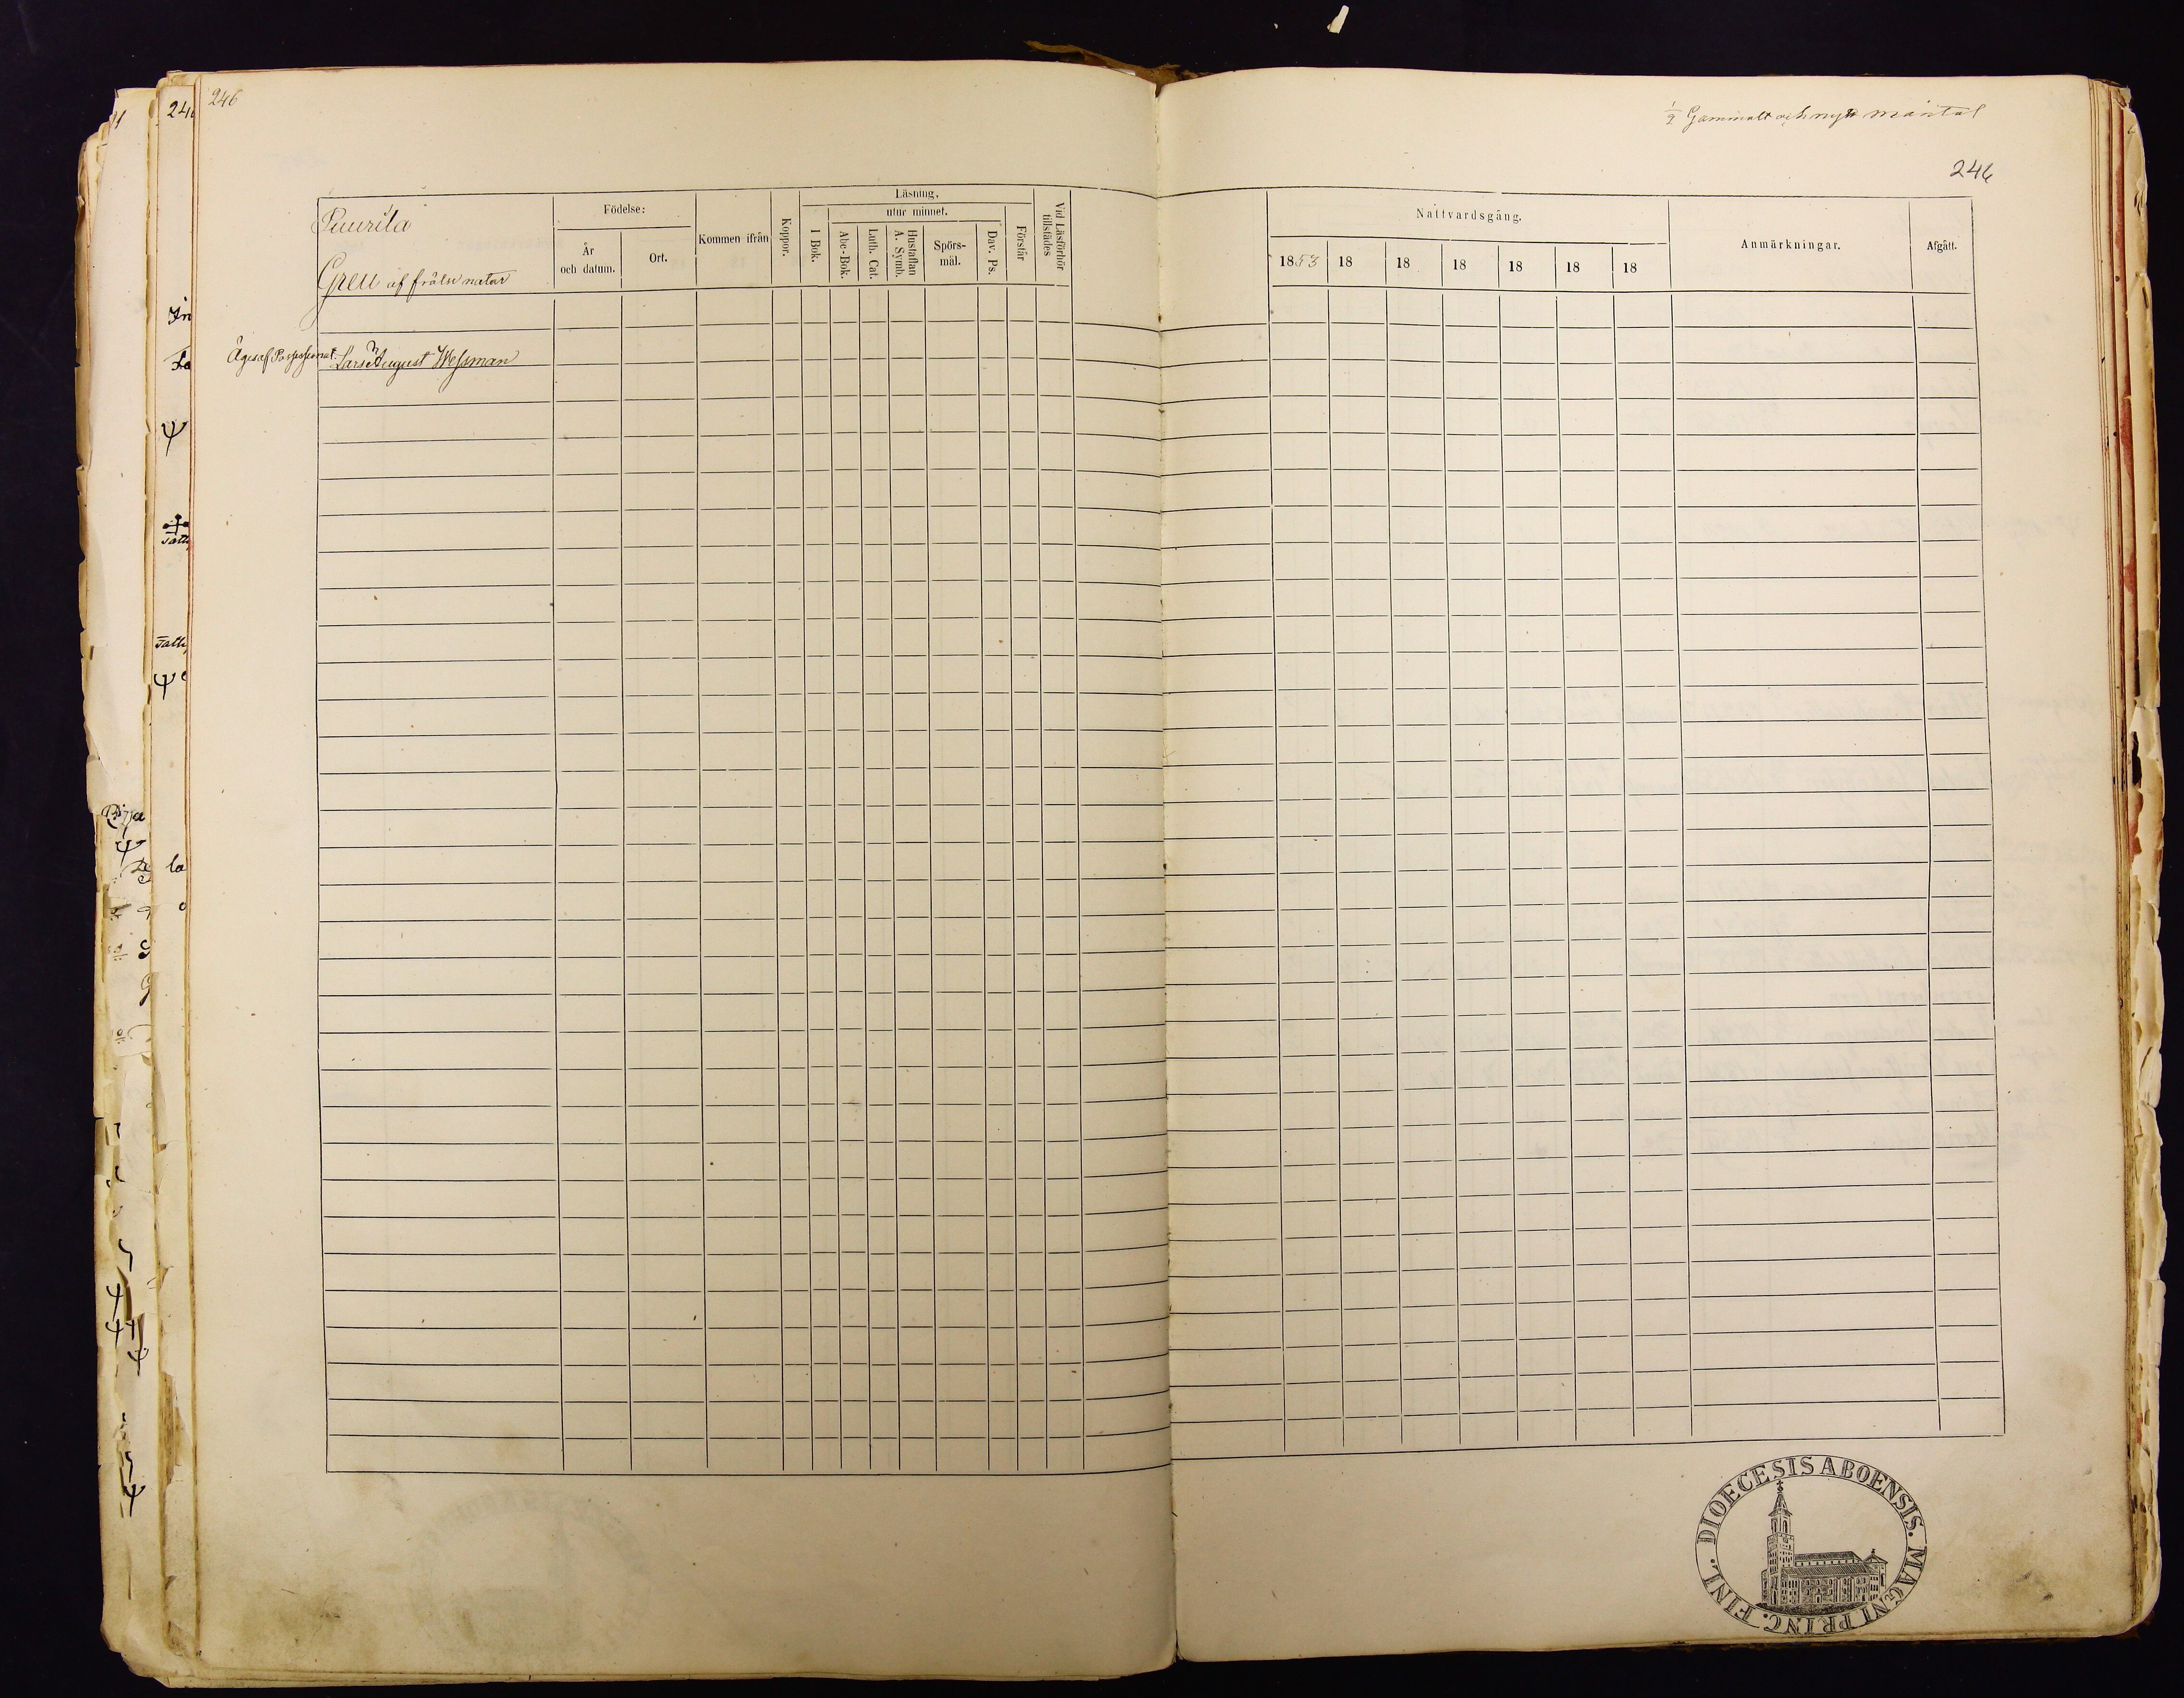 246
½ Gammalt och nytt mantal
246
Puurila
Greu af frälse natur
Födelse:
År
och datum.
Ort.
Kommen ifrån
Koppor.
Läsning,
utur minnet.
I Bok.
Abc-Bok.
Luth. Cat.
Hustaflan
A. Symb.
Spörs-
mål.
Dav. Ps.
Förstår
Vid Läsförhör
tillstädes
Nattvardsgång.
1853
18
18
18
18
18
18
Anmärkningar.
Afgått.
Äges af Possessionat. Lars August Wessman
FINL. DIOECESIS ABOENSIS. MAGNI PRINC.